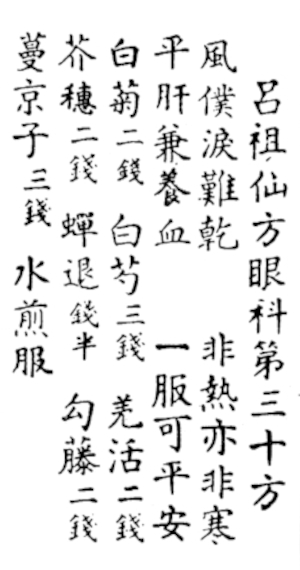 呂祖仙方眼科第三十方
風僕淚難乾　非熱亦非寒
平肝兼養血　一服可平安
白菊二錢　白芍三錢　羌活二錢
芥穗二錢　蟬退錢半　勾藤二錢
蔓京子三錢　水煎服